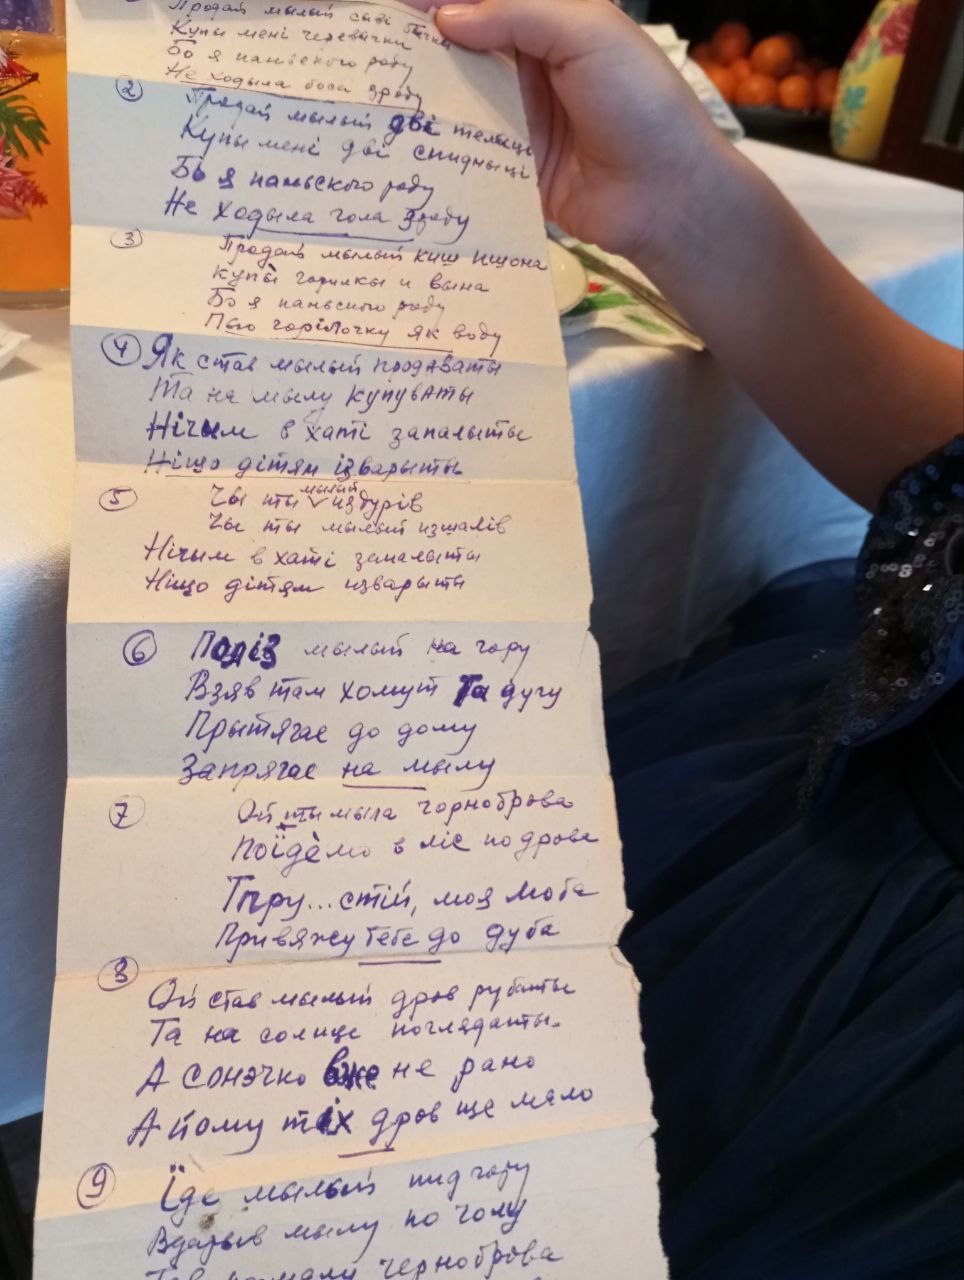 Продай мылый сыві бычки
Купы мені черевички
Бо я паньского роду
Не ходыла боса зроду
2
Продай мылый дві телыці
Купы мені дві спидныці
Бо я паньского роду
Не ходыла гола зроду
3
Продай мылый киш пшона
Купы горилкы и вына
Бо я паньского роду
Пью горілочку як воду
4 Як став мылый продаваты
Та на мылу купуваты
Нічым в хаті запалыты
Ніщо дітям ізварыты
5 Чы ты мылый издурів
Чы ты мылый изшалів
Нічым в хаті запалыты
Ніщо дітям изварыты
6 Поліз мылый на гору
Взяв там хомут та дугу
Прытягае до дому
Запрягае на мылу
7 Ой ты мыла чорноброва
Поїдемо в ліс по дрова
Тпру... стій, моя люба
Привяжу тебе до дуба
8
Ой став мылый дров рубаты
Та на солнце поглядаты.
А сонэчко вже не рано
А йому тіх дров ще мало
9 Їде мылый пид гору
Вдарыв мылу по чолу
черноброва